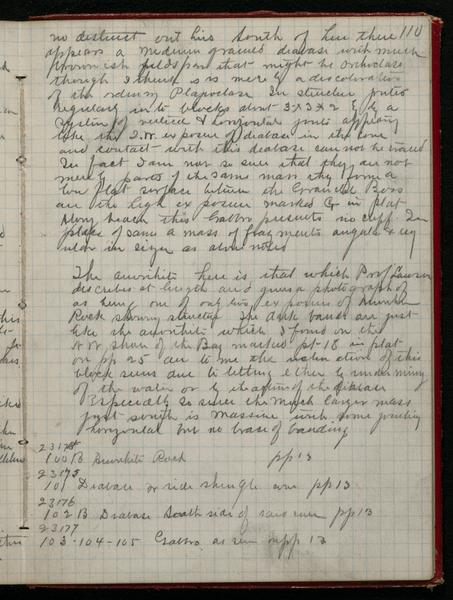 110
no distinct out this South of here there
appears a medium grained diabase with much
brownish feldspar that might be Orthoclase
though I think is merely a discoloration
of the ordinary Plagioclase In structure jointed
regularly into blocks about 3 x 3 x 2 by a
System of vertical & horizontal joints appearing
like the exposure of diabase in the cove
and contact with this diabase can not be traced
In fact I am not so sure that they are not
merely parts of the same mass they form a
low flat surface between the Granite Boss
and the high exposure marked in plat
Along beach this Gabbro presents no cliff. In
place of same a mass of fragments angular & reg
ular in size as above noted
The anorthite here is that which Prof Lawson
describes at length and gives a photograph of
as being one of only two exposures of
Rock showing structure The dark bands are just
like the anorthite which I found on the
N.W. shore of the Bay marked pt-18 in plat
on pp 25 and to me the inclination of this
block seems due to letting either by undermining
of the water or by the action of the diabase
Especially so since the much larger mass
just south is massive with some jointing
horizontal but no trace of banding
23174
100 B Anorthite Rock pp 13
23175
101 Diabase shingle cove pp 13
23176
102 B Diabase South side of said cove pp 13
23177
103-104-105 Gabbro as seen on pp 13